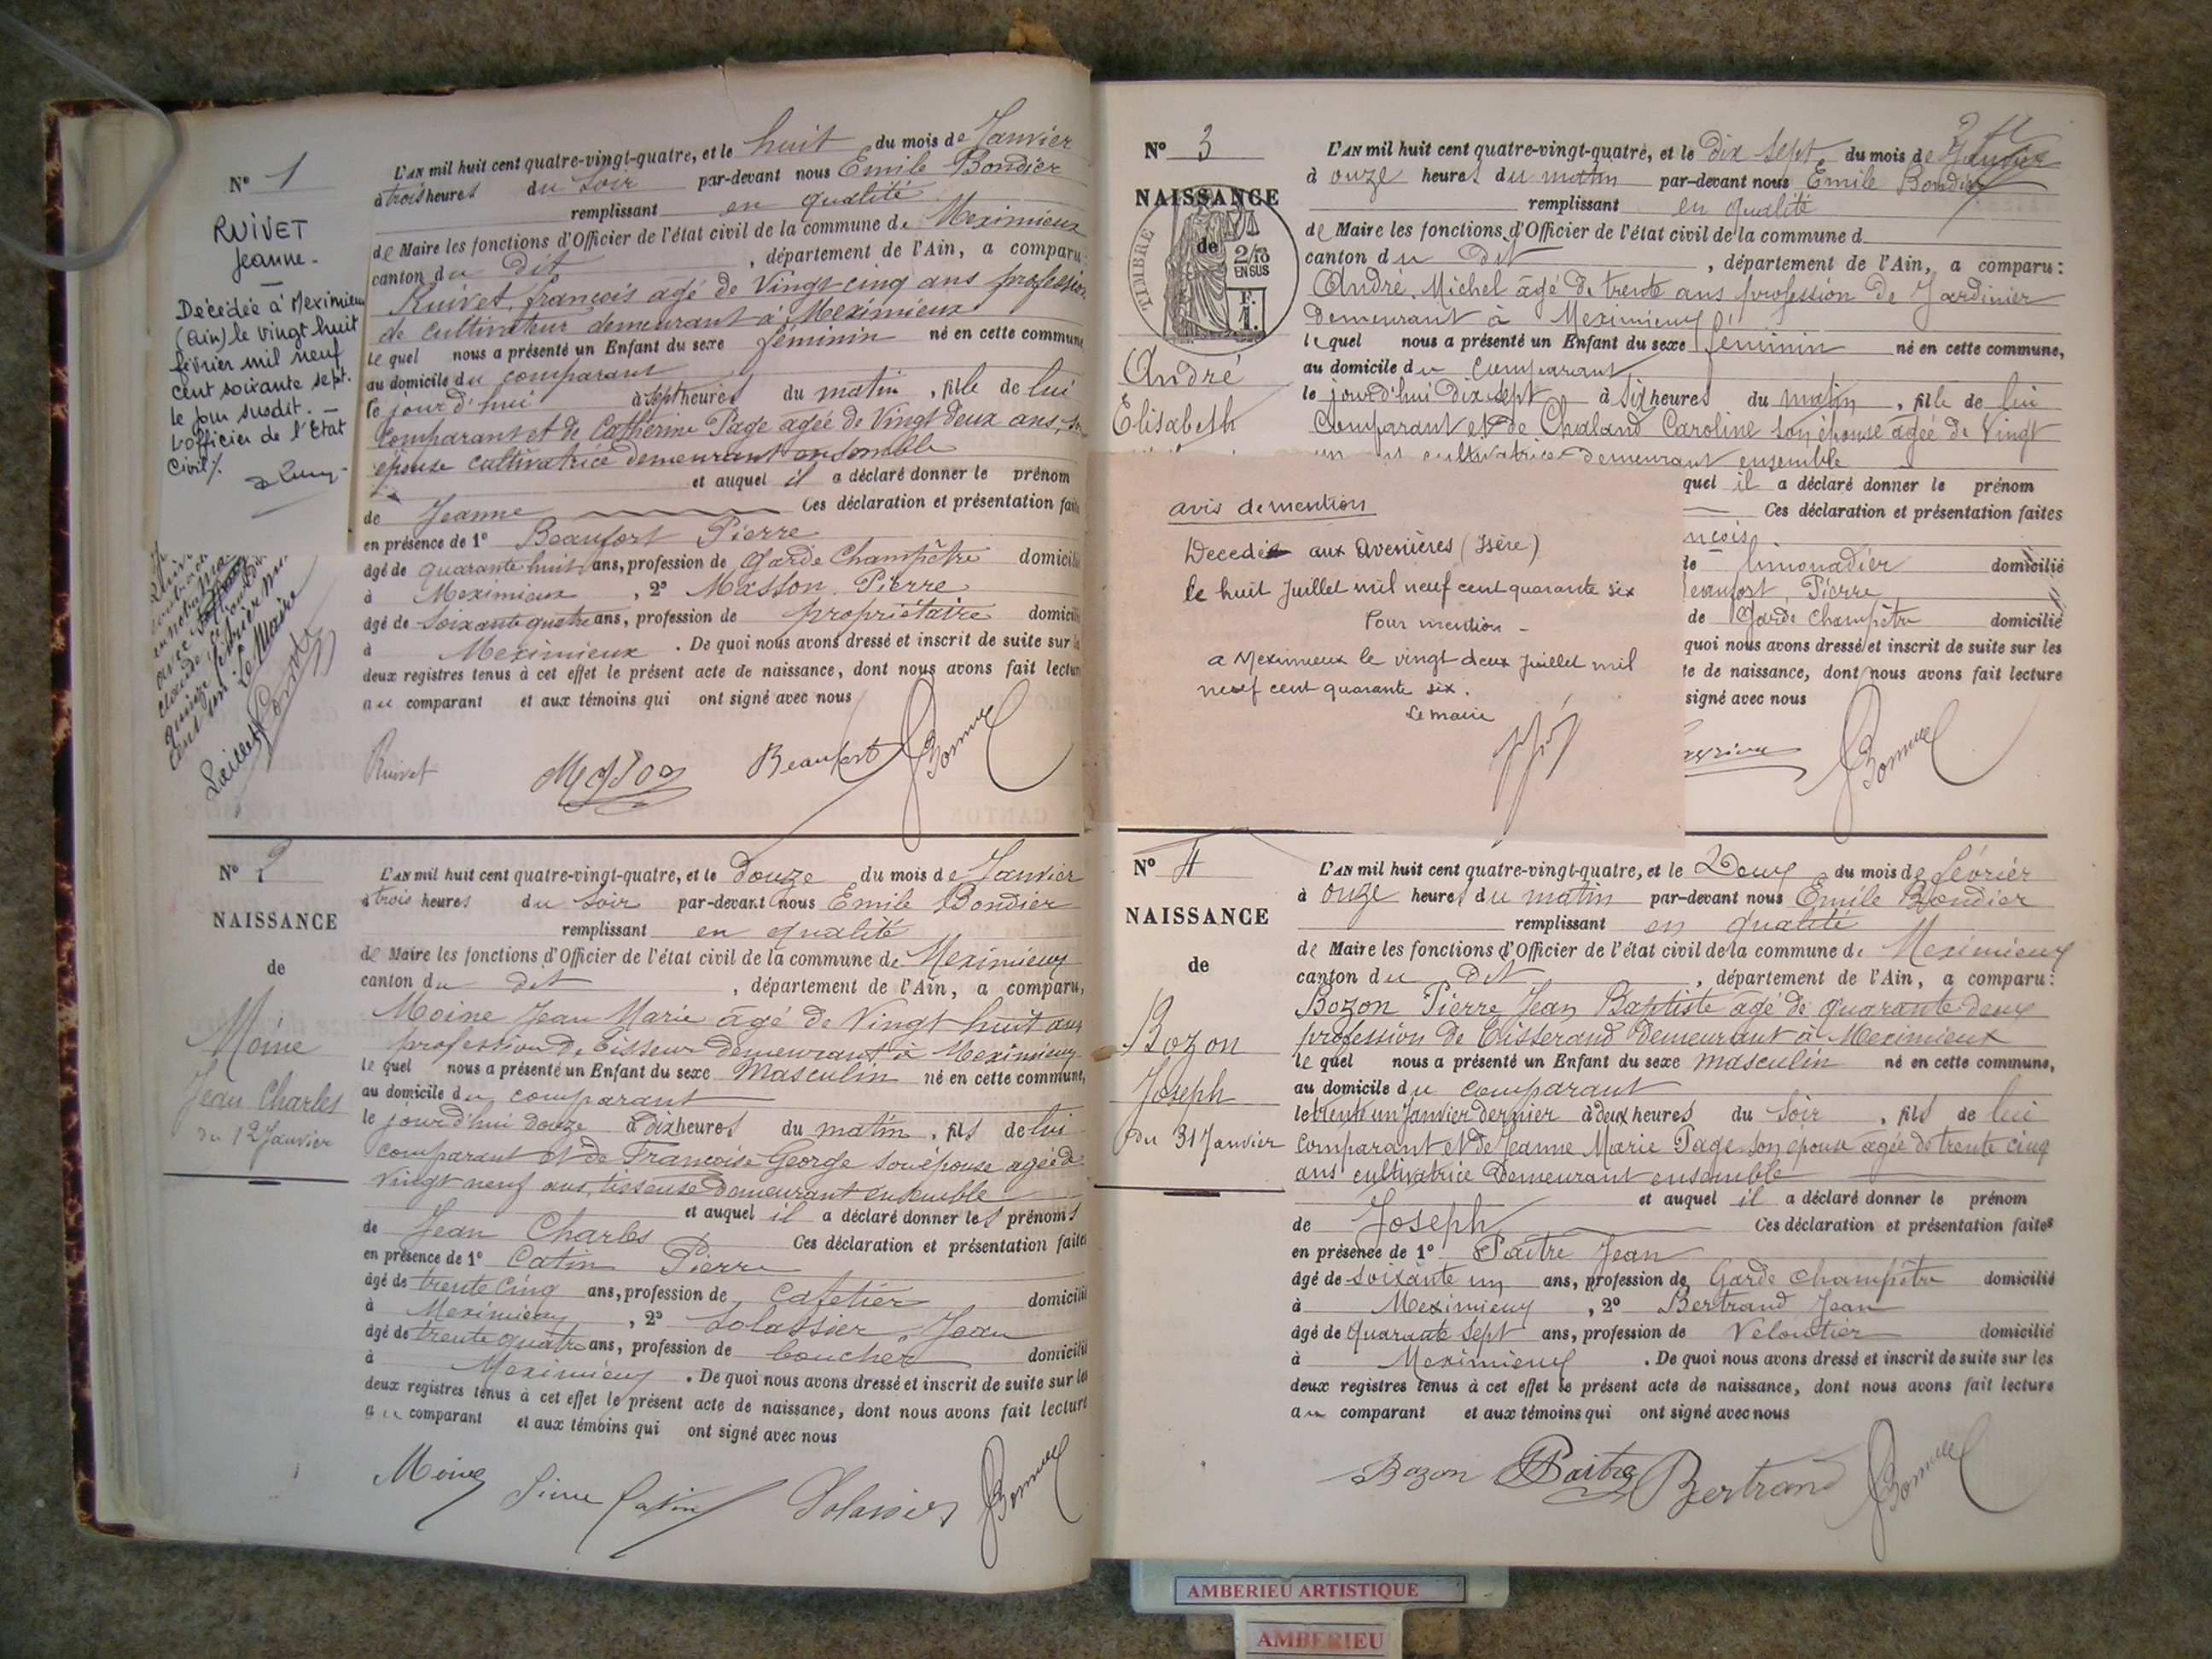 N° 1
RUIVET
Jeanne -
Décédée à Meximieux
(Ain) le vingt huit
février mil neuf
cent soixante sept.
le jour susdit. -
L'officier de l'Etat
Civil/.
Le Maire
L'AN mil huit cent quatre-vingt-quatre, et le huit du mois de Janvier
à trois heures du Soir par-devant nous Emile Bondier
remplissant en qualité
de Maire les fonctions d'Officier de l'état civil de la commune de Meximieux
canton du dit , département de l'Ain, a comparu:
Ruivet, françois agé de Vingt-cinq ans profession
de cultivateur demeurant à Meximieux
le quel nous a présenté un Enfant du sexe féminin né en cette commune,
au domicile du comparant
le jourd'hui à sept heures du matin , fille de lui
comparant et de Catherine Page agée de Vingt deux ans, son
épouse cultivatrice demeurant ensemble
et auquel il a déclaré donner le prénom
de Jeanne Ces déclaration et présentation faites
en présence de 1° Beaufort Pierre
âgé de quarante huit ans, profession de Garde Champêtre domicilié
à Meximieux , 2° Masson Pierre
âgé de Soixante quatre ans, profession de propriétaire domicilié
à Meximieux . De quoi nous avons dressé et inscrit de suite sur les
deux registres tenus à cet effet le présent acte de naissance, dont nous avons fait lecture
au comparant et aux témoins qui ont signé avec nous
Ruivet Beaufort
N° 2
NAISSANCE
de
Moine
Jean Charles
du 12 Janvier
L'AN mil huit cent quatre-vingt-quatre, et le douze du mois de Janvier
à trois heures du Soir par-devant nous Emile Bondier
remplissant en qualité
de Maire les fonctions d'Officier de l'état civil de la commune de Meximieux
canton du dit , département de l'Ain, a comparu,
Moine Jean Marie agé de Vingt huit ans
profession de Tisseur demeurant à Meximieux
le quel nous a présenté un Enfant du sexe Masculin né en cette commune,
au domicile du comparant
le jourd'hui douze à dix heures du matin , fils de lui
comparant et de Françoise George son épouse agée de
Vingt neuf ans, tisseuse demeurant ensemble
et auquel il a déclaré donner les prénoms
de Jean Charles Ces déclaration et présentation faites
en présence de 1° Catin Pierre
âgé de trente cinq ans, profession de Cafetier domicilié
à Meximieux , 2° Solassier Jean
âgé de trente quatre ans, profession de boucher domicilié
à Meximieux . De quoi nous avons dressé et inscrit de suite sur les
deux registres tenus à cet effet le présent acte de naissance, dont nous avons fait lecture
au comparant et aux témoins qui ont signé avec nous
Moine Pierre Catin
N° 3
NAISSANCE
de
TIMBRE
2/10
EN SUS
F.
1.
André
Elisabeth
L'AN mil huit cent quatre-vingt-quatre, et le dix sept du mois de Janvier
à onze heures du matin par-devant nous Emile Bondier
remplissant en qualité
de Maire les fonctions d'Officier de l'état civil de la commune d
canton du dit , département de l'Ain, a comparu:
André Michel âgé de trente ans profession de Jardinier
demeurant à Meximieux
le quel nous a présenté un Enfant du sexe féminin né en cette commune,
au domicile du comparant
le jourd'hui Dix sept à Six heures du matin , fille de lui
Comparant et de Chaland Caroline son épouse agée de Vingt
cultivatrice demeurant ensemble
quel il a déclaré donner le prénom
Ces déclaration et présentation faites
limonadier domicilié
eaufort, Pierre
de Garde Champêtre domicilié
quoi nous avons dressé et inscrit de suite sur les
te de naissance, dont nous avons fait lecture
signé avec nous
avis de mention
Decedée aux Avenières (Isère)
le huit Juillet mil neuf cent quarante six
Pour mention -
a Meximieux le vingt deux Juillet mil
neuf cent quarante six.
Le maire
N° 4
NAISSANCE
de
Bozon
Joseph
du 31 Janvier
L'AN mil huit cent quatre-vingt-quatre, et le Deux du mois de février
à onze heures du matin par-devant nous Emile Bondier
remplissant en qualité
de Maire les fonctions d'Officier de l'état civil de la commune de Meximieux
canton du dit , département de l'Ain, a comparu:
Bozon Pierre Jean Baptiste agé de quarante deux
profession de Tisserand demeurant à Meximieux
le quel nous a présenté un Enfant du sexe masculin né en cette commune,
au domicile du comparant
le trente un Janvier dernier à deux heures du Soir , fils de lui
Comparant et de Jeanne Marie Page son épouse agée de trente cinq
ans cultivatrice demeurant ensemble
et auquel il a déclaré donner le prénom
de Joseph Ces déclaration et présentation faites
en présence de 1° Paitre Jean
âgé de soixante un ans, profession de Garde champêtre domicilié
à Meximieux , 2° Bertrand Jean
âgé de quarante sept ans, profession de Veloutier domicilié
à Meximieux . De quoi nous avons dressé et inscrit de suite sur les
deux registres tenus à cet effet le présent acte de naissance, dont nous avons fait lecture
au comparant et aux témoins qui ont signé avec nous
Bozon Paitre Bertrand
AMBERIEU ARTISTIQUE
AMBERIEU